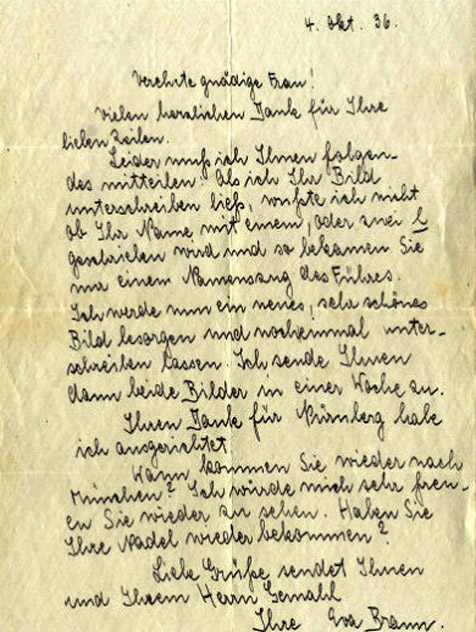 4. Okt. 36.
Verehrte gnädige Frau!
Vielen herzlichen Dank für Ihre
lieben Zeilen.
Leider muß ich Ihnen folgen-
des mitteilen: Als ich Ihr Bild
unterschreiben ließ, wußte ich nicht
ob Ihr Name mit einem, oder zwei l
geschrieben wird und so bekamen Sie
nur einem Namenszug des Führes.
Ich werde nun ein neues, sehr schönes
Bild besorgen und nocheinmal unter-
schreiben lassen. Ich sende Ihnen
dann beide Bilder in einer Woche zu.
Ihren Dank für Nürnberg habe
ich ausgerichtet
Wann kommen Sie wieder nach
München? Ich würde mich sehr freu-
en Sie wieder zu sehen. Haben Sie
Ihre Nadel wieder bekommen?
Liebe Grüße sendet Ihnen
und Ihrem Herrn Gemahl
Ihre Eva Braun.